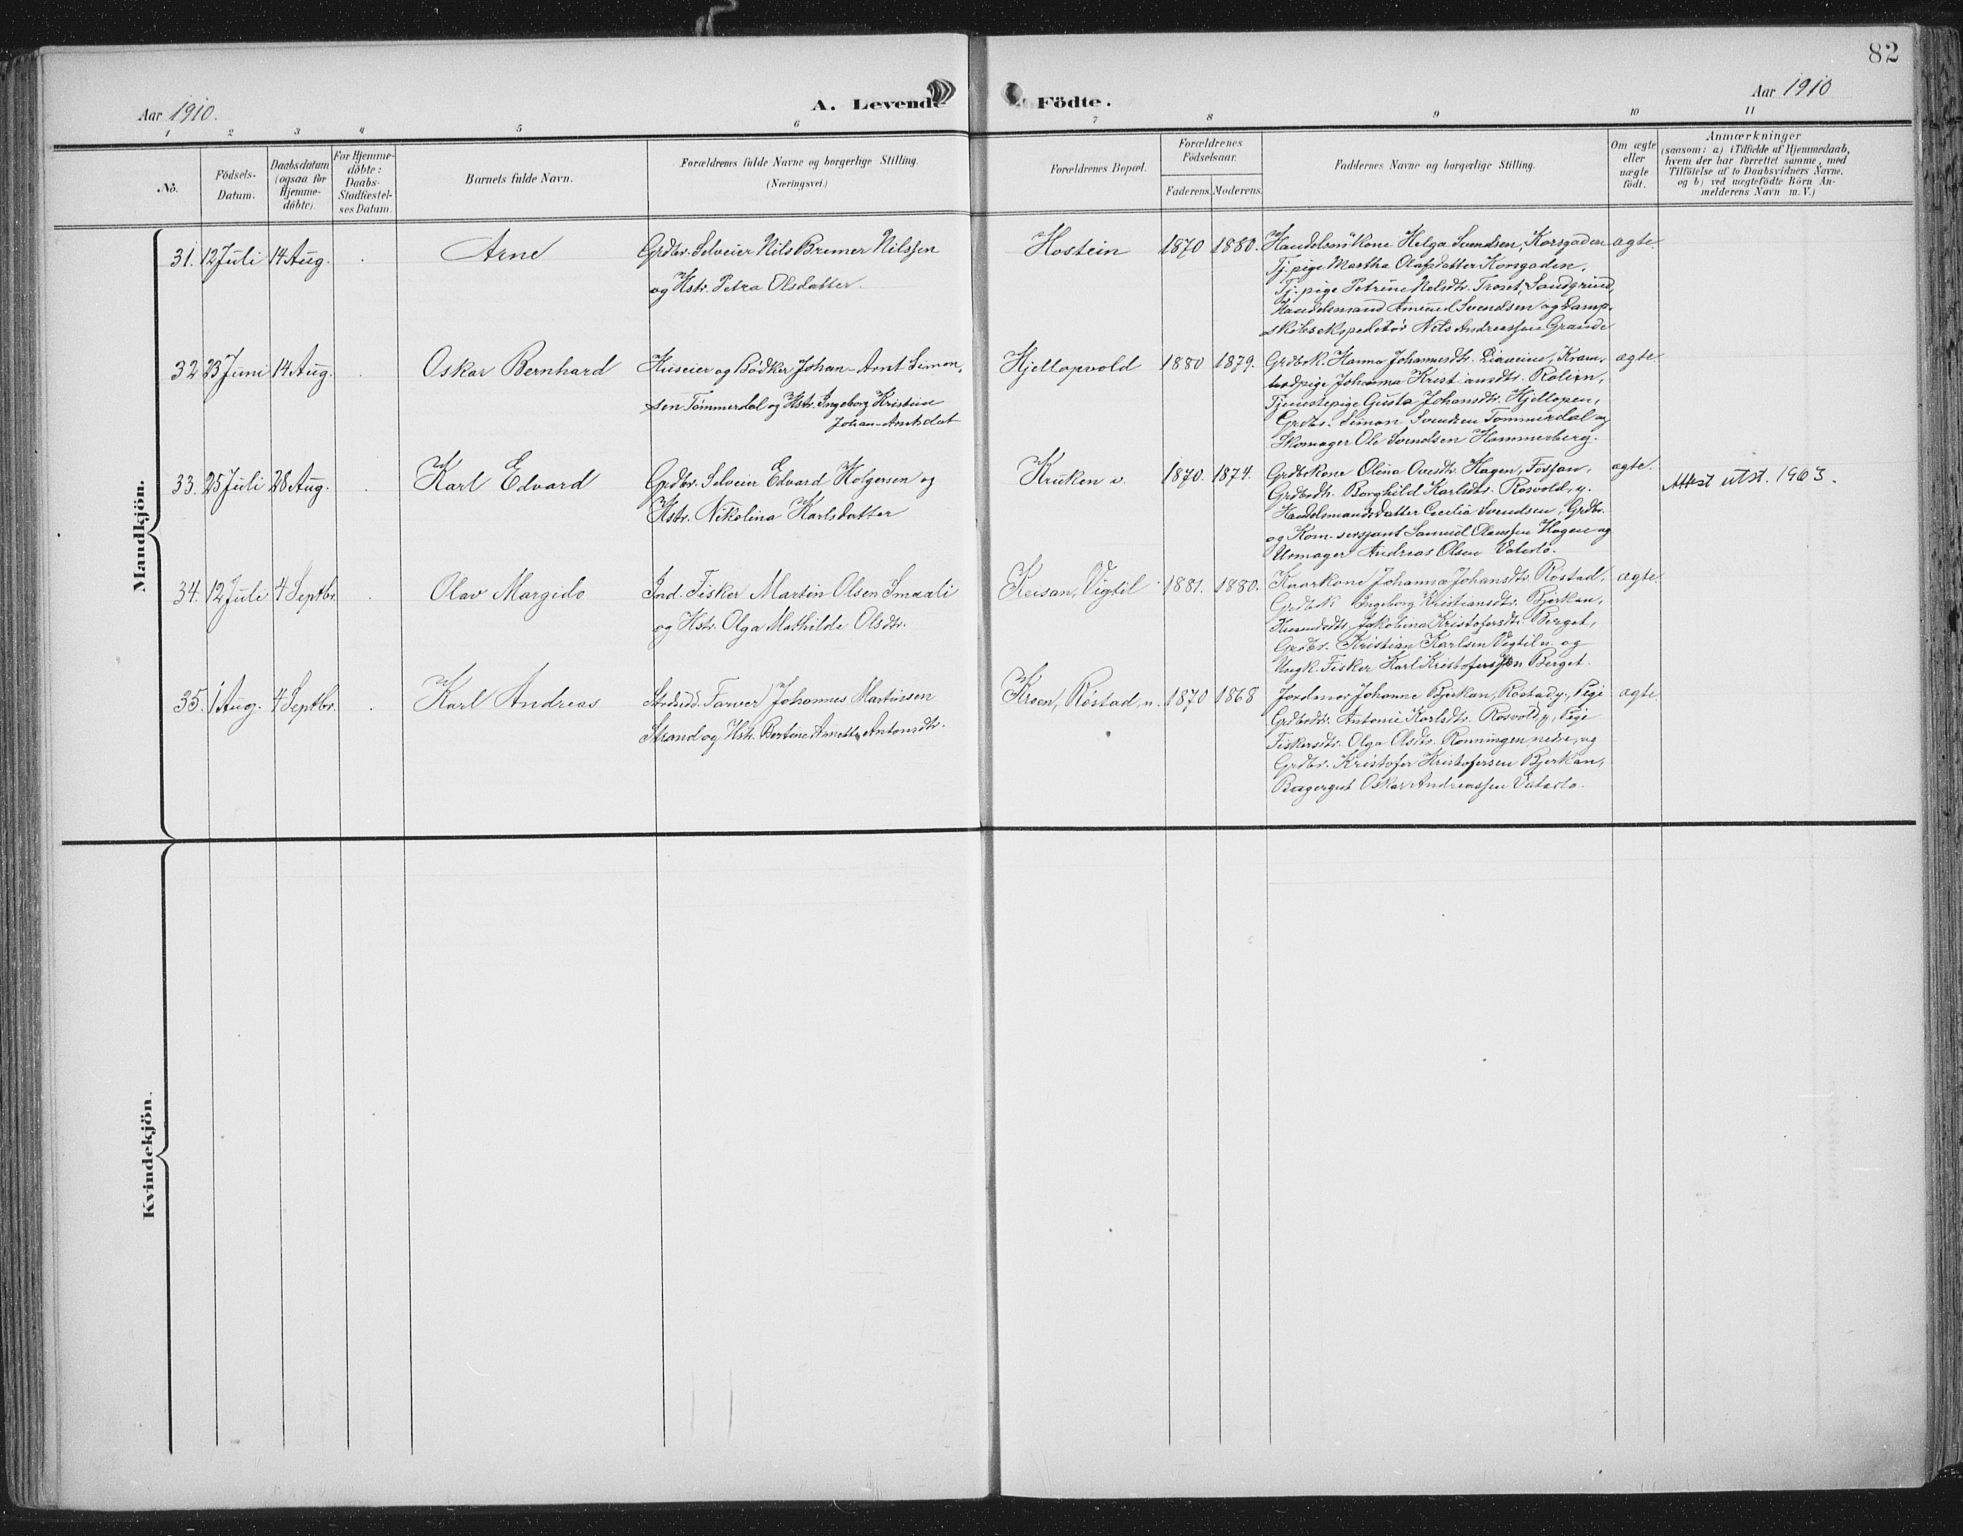 82
Aar 1910.
A. Levende Födte.
Aar 1910
1 2 3 4 5 6 7 8 9 10 11
No.
Födsels-Datum.
Daabsdatum (ogsaa for Hjemme-döbte).
For Hjemme-döbte: Daabs-Stadfæstel-ses Datum.
Barnets fulde Navn.
Forældrenes fulde Navne og borgerlige Stilling.
(Næringsvei.)
Forældrenes Bopæl.
Forældrenes Födselsaar.
Faderens. Moderens.
Faddernes Navne og borgerlige Stilling.
Om ægte eller uægte födt.
Anmærkninger
(saasom: a) i Tilfælde af Hjemmedaab,
hvem der har forrettet samme, med
Tilföielse af to Daabsvidners Navne,
og b) ved uægtefödte Börn An-
melderens Navn m. V.)
Mandkjön.
31. 12 Juli 14 Aug. Arne
Grdbr. Selveier Nils Bremer Nilssen
og Hstr. Petra Olsdatter.
Hostein 1870 1880.
Handelsm. Kone Helga Svendsen, Korsgaden
Tj. pige Martha Olafsdatter Korsgaden,
Tj. pige Petrine Nelsdtr. Troset, Sandgrund,
Handelsmand Amund Svendsen og Damp-
skibsekspeditör Nels Andreassen Grande
ægte.
32 23 Juni 14 Aug. Oskar Bernhard
Huseier og Bödker Johan-Arnt Simon-
sen Tömmerdal og Hstr. Ingeborg Kristine
Johan-Arntsdat
Hjellopvold 1880 1879.
Grdbrk. Hanna Johannesdtr. Kram-
bodpige Johanna Kristiansdtr. Rolien,
Tjenestepige Gusta Johansdtr. Hjellopen,
Grdbr. Simon Svendsen Tömmerdal og
Skomager Ole Svendsen Hammerberg.
ægte
33. 25 Juli 28 Aug. Karl Edvard
Grdbr. Selveier Edvard Holgersen og
Hstr. Nikolina Karlsdatter
Kruken v. 1870. 1874.
Grdbrkone Olina Ovesdtr. Hagen, Fosjan,
Grdbrdtr. Borghild Karlsdtr. Rosvold, y.
Handelsmandsdatter Cecilia Svendsen, Grdbr.
og Kom-sersjant Samuel Olaussen Hagen og
Urmager Andreas Olsen
ægte.
Attest utst. 1963.
34. 12 Juli 4 Septbr. Olav Margido
Ind. Fisker Martin Olsen Smaali
og Hstr. Olga Mathilde Olsdtr.
Reisan, Vigtil 1881. 1880.
Johanna Johansdtr. Rostad,
Grdbrk Ingeborg Kristiansdtr. Bjerkan,
Jakobina Kristofersdtr. Berget,
Grdbr. Kristian Karlsen Vigtil n. og
Ungk. Fisker Karl Kristofersen Berget.
ægte
35. 1 Aug. 4 Septbr. Karl Andreas
Strdsid. Farver Johannes Martinsen
Strand og Hstr. Bertine Anette Antonsdtr.
Kroen, Röstad n. 1870 1868
Jordmor Johanne Bjerkan, Röstad y, Pige
Grdbrdtr. Antonie Karlsdtr. Rosvold, y, Pige
Fiskersdtr. Olga Olsdtr. Rönningen nedre, og
Grdbr. Kristofer Kristofersen Bjerkan,
Bagergut Oskar Andreassen
ægte.
Kvindekjön.